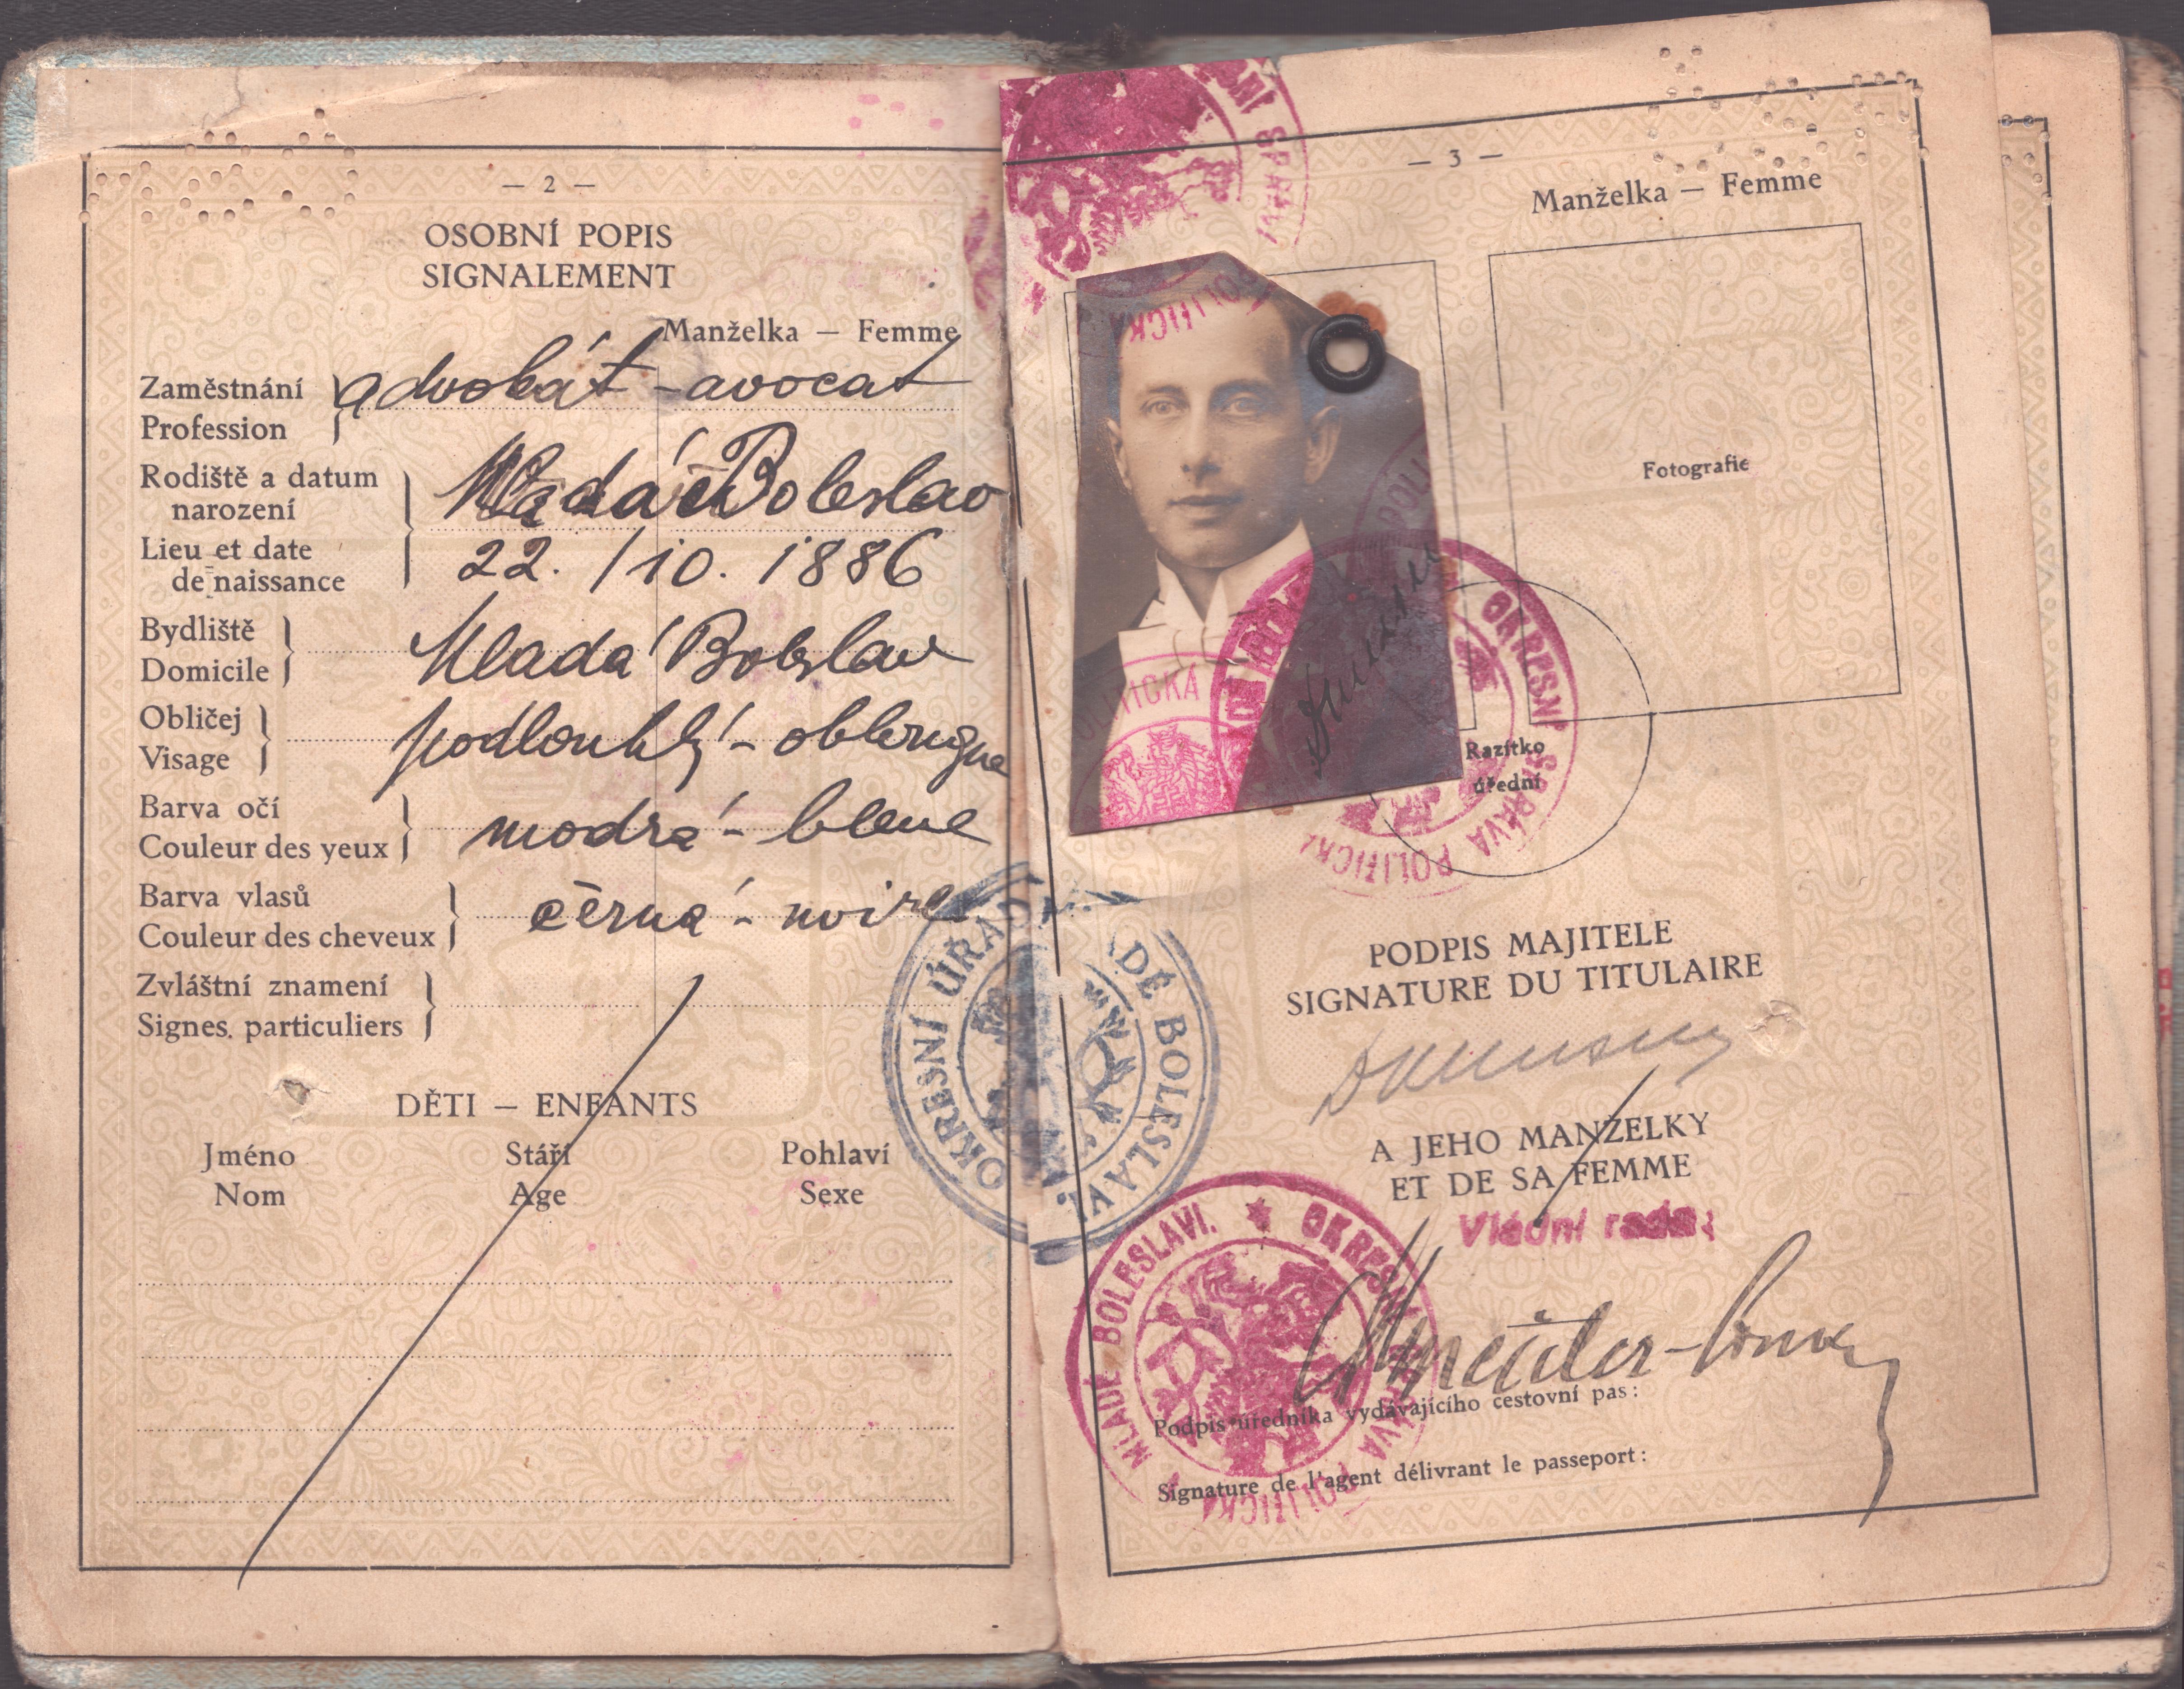 — 2 —
OSOBNÍ POPIS
SIGNALEMENT
Manželka — Femme
Zaměstnání
Profession
advokát - avocat
Rodiště a datum
narození
Lieu et date
de naissance
Mladá Boleslav
22. /10. 1886
Bydliště
Domicile
Mladá Boleslav
Obličej
Visage
podlouhlý - oblongue
Barva očí
Couleur des yeux
modrá - bleue
Barva vlasů
Couleur des cheveux
černá - noire
Zvláštní znamení
Signes particuliers
DĚTI — ENFANTS
Jméno Stáří Pohlaví
Nom Age Sexe
OKRESNÍ ÚŘAD DĚ BOLESLAVI.
— 3 —
Manželka — Femme
NÍ SPRÁV
POLITICKÁ
Fotografie
POLITICKÁ
OKRESNÍ SPRÁVA POLITICKÁ
Razítko
úřední
PODPIS MAJITELE
SIGNATURE DU TITULAIRE
A JEHO MANŽELKY
ET DE SA FEMME
Vládní rada:
MLADÉ BOLESLAVI. * OKRESNÍ SPRÁVA POLITICKÁ
Podpis úředníka vydávajícího cestovní pas:
Signature de l'agent délivrant le passeport: